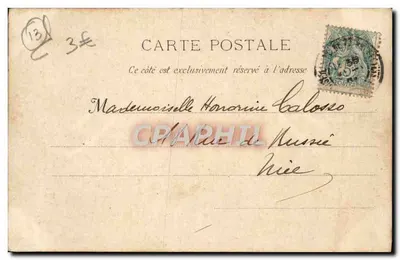 13
3€
CARTE POSTALE
Ce côté est exclusivement réservé à l'adresse
Mademoiselle Honorine Calosso
CPAPHTIL
Rue de Russie
Nice